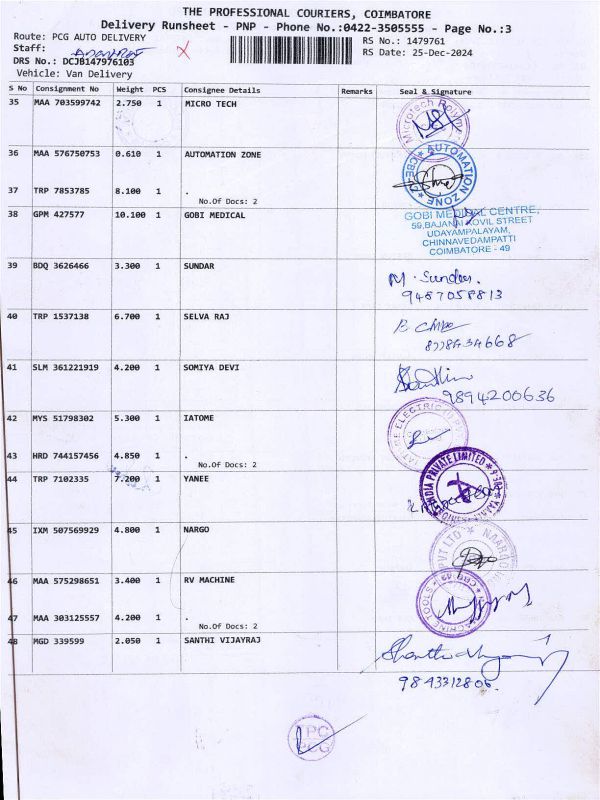 THE PROFESSIONAL COURIERS, COIMBATORE
Delivery Runsheet - PNP - Phone No.:0422-3505555 - Page No.:3
Route: PCG AUTO DELIVERY
RS No.: 1479761
Staff:
RS Date: 25-Dec-2024
DRS No.: DCJB147976103
Vehicle: Van Delivery
S No Consignment No Weight PCS Consignee Details Remarks Seal & Signature
35 MAA 703599742 2.750 1 MICRO TECH
36 MAA 576750753 0.610 1 AUTOMATION ZONE
AUTOMATION ZONE
37 TRP 7853785 8.100 1 .
No.Of Docs: 2
38 GPM 427577 10.100 1 GOBI MEDICAL
GOBI MEDICAL CENTRE,
59,BAJANAI KOVIL STREET
UDAYAMPALAYAM,
CHINNAVEDAMPATTI
COIMBATORE - 49
39 BDQ 3626466 3.300 1 SUNDAR
M. Sundar.
9487058813
40 TRP 1537138 6.700 1 SELVA RAJ
41 SLM 361221919 4.200 1 SOMIYA DEVI
9894200636
42 MYS 51798302 5.300 1 IATOME
43 HRD 744157456 4.850 1 .
No.Of Docs: 2
44 TRP 7102335 7.200 1 YANEE
INDIA PRIVATE LIMITED
45 IXM 507569929 4.800 1 NARGO
46 MAA 575298651 3.400 1 RV MACHINE
47 MAA 303125557 4.200 1 .
No.Of Docs: 2
48 MGD 339599 2.050 1 SANTHI VIJAYRAJ
9843312806.
PCG